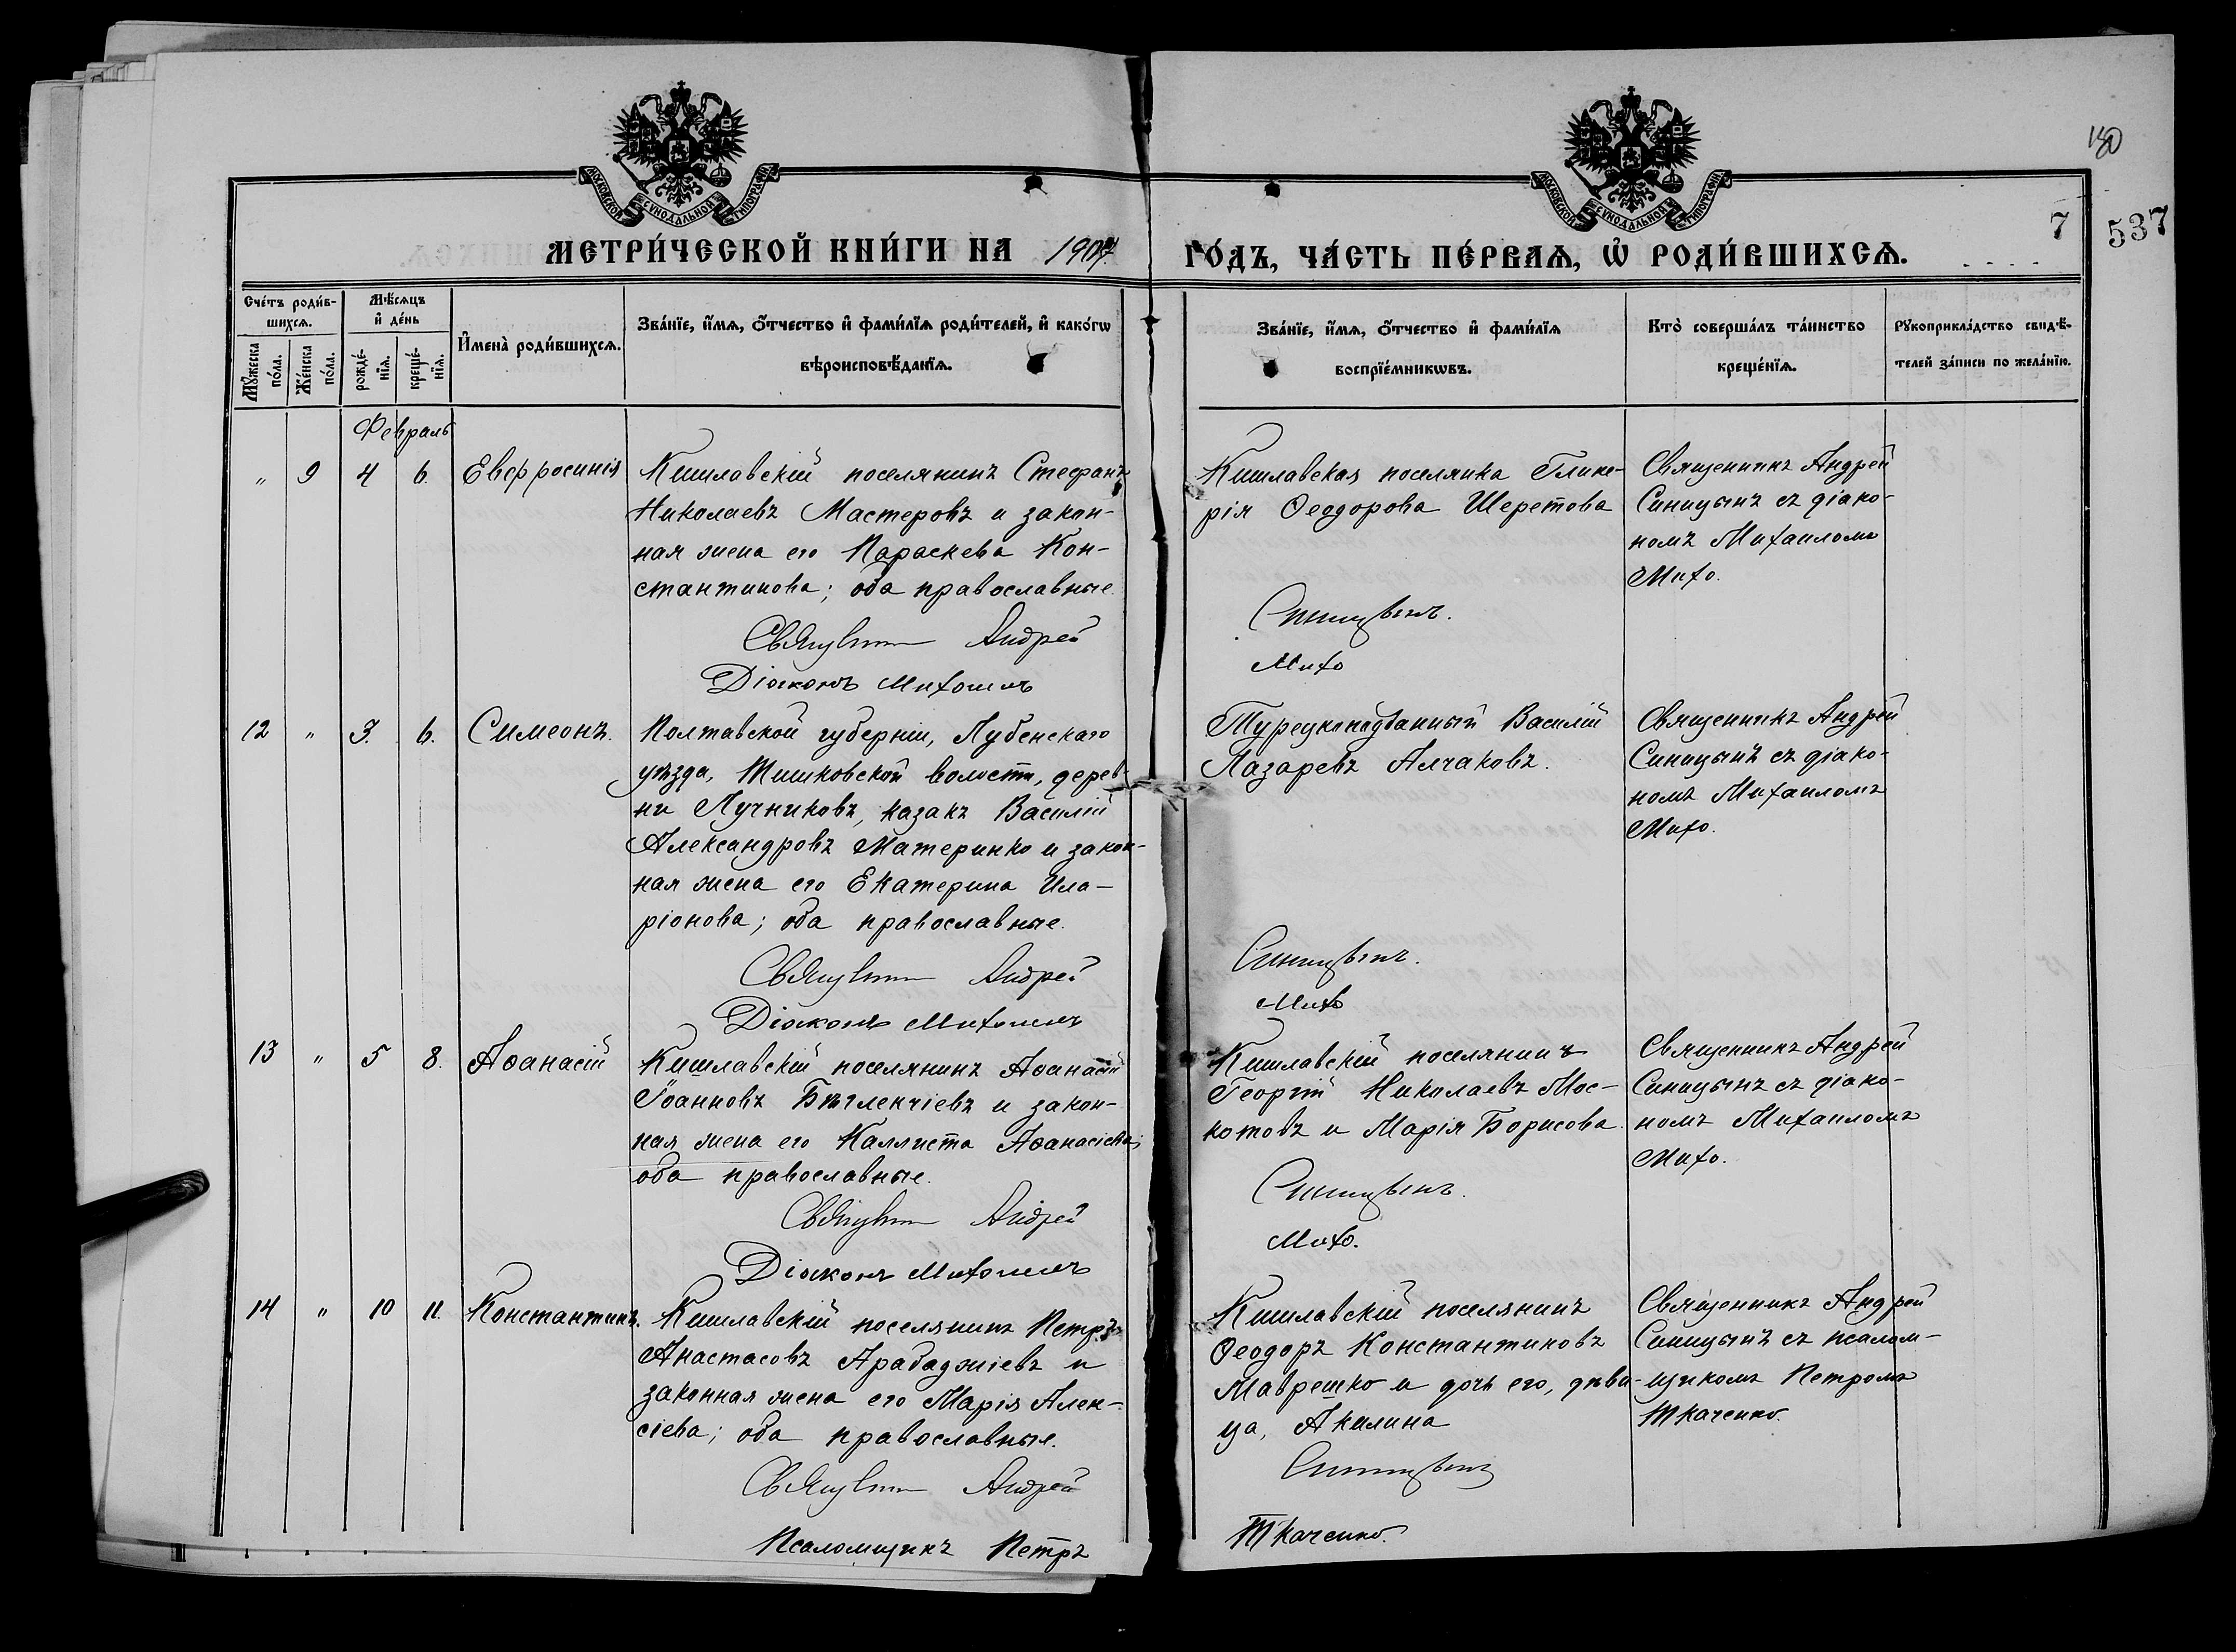 180
7
537
МОСКОВСКОЙ СУНОДАЛЬНОЙ ТИПОГРАФІИ
МОСКОВСКОЙ СУНОДАЛЬНОЙ ТИПОГРАФІИ
МЕТРИ́ЧЕСКОЙ КНИ́ГИ НА 1904
ГО́ДЪ, ЧА́СТЬ ПЕ́РВАѦ, Ѡ҆ РОДИ́ВШИХСѦ.
Сче́тъ роди́в-
шихсѧ.
Мꙋ́жеска
по́ла.
Же́нска
по́ла.
Мѣ́сѧцъ
и҆ де́нь
рожде́-
нїѧ.
креще́-
нїѧ.
И҆мена̀ роди́вшихсѧ.
Зва́нїе, и҆́мѧ, ѻ҆́тчество и҆ фами́лїѧ роди́телей, и҆ како́гѡ
вѣроисповѣ́данїѧ.
Зва́нїе, и҆́мѧ, ѻ҆́тчество и҆ фами́лїѧ
воспрїе́мникѡвъ.
Кто̀ соверша́лъ та́инство
креще́нїѧ.
Рꙋкоприкла́дство свидѣ́-
телей за́писи по жела́нїю.
Февраль
" 9 4 6. Евфросинія
Кишлавскій поселянинъ Стефанъ
Николаевъ Мастеровъ и закон-
ная жена его Параскева Кон-
стантинова; оба православные.
Священникъ Андрей
Діаконъ Михаилъ
Кишлавская поселянка Глике-
рія Ѳеодорова Шеретова
Синицынъ.
Михо
Священникъ Андрей
Синицынъ съ діако-
номъ Михаиломъ
Михо.
12 " 3. 6. Симеонъ.
Полтавской губерніи, Лубенскаго
уѣзда, Тишковской волости, дерев-
ни Лучниковъ, казакъ Василій
Александровъ Материнко и закон-
ная жена его Екатерина Ила-
ріонова; оба православные.
Священникъ Андрей
Діаконъ Михаилъ
Турецкоподданный Василій
Лазаревъ Алчаковъ.
Синицынъ.
Михо
Священникъ Андрей
Синицынъ съ діако-
номъ Михаиломъ
Михо.
13 " 5 8. Аѳанасій
Кишлавскій поселянинъ Аѳанасій
Іоанновъ Бѣгленчіевъ и закон-
ная жена его Каллиста Аѳанасіева;
оба православные.
Священникъ Андрей
Діаконъ Михаилъ
Кишлавскій поселянинъ
Георгій Николаевъ Мос-
котовъ и Марія Борисова.
Синицынъ.
Михо.
Священникъ Андрей
Синицынъ съ діако-
номъ Михаиломъ
Михо.
14 " 10 11. Константинъ.
Кишлавскій поселянинъ Петръ
Анастасовъ Арабаджіевъ и
законная жена его Марія Алек-
сіева; оба православные.
Священникъ Андрей
Псаломщикъ Петръ
Кишлавскій поселянинъ
Ѳеодоръ Константиновъ
Маврешко и дочь его, дѣви-
ца, Акилина
Синицынъ
Ткаченко.
Священникъ Андрей
Синицынъ съ псалом-
щикомъ Петромъ
Ткаченко.